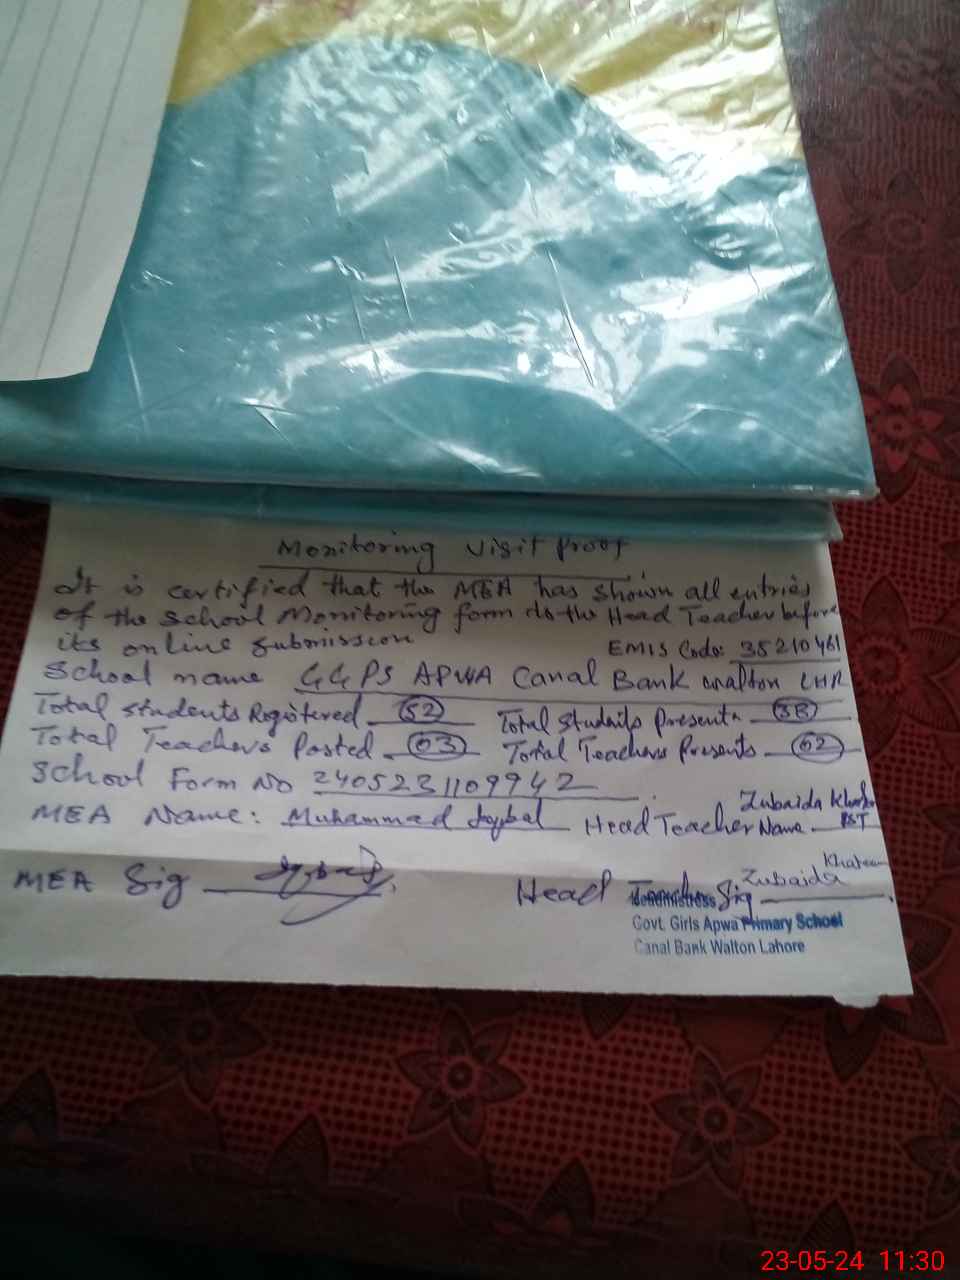 Monitoring Visit Proof
It is certified that the MEA has shown all entries
of the School Monitoring form to the Head Teacher before
its online submission
EMIS Code: 35210461
School name GGPS APWA Canal Bank walton LHR
Total Students Registered 52 Total Students Present 38
Total Teachers Posted 03 Total Teachers Presents 02
School Form No 2405231109942
MEA Name: Muhammad Iqbal Head Teacher Name Zubaida Khatoon
PST
MEA Sig Head Teacher Sig Zubaida Khatoon
Headmistress
Govt. Girls Apwa Primary School
Canal Bank Walton Lahore
23-05-24 11:30